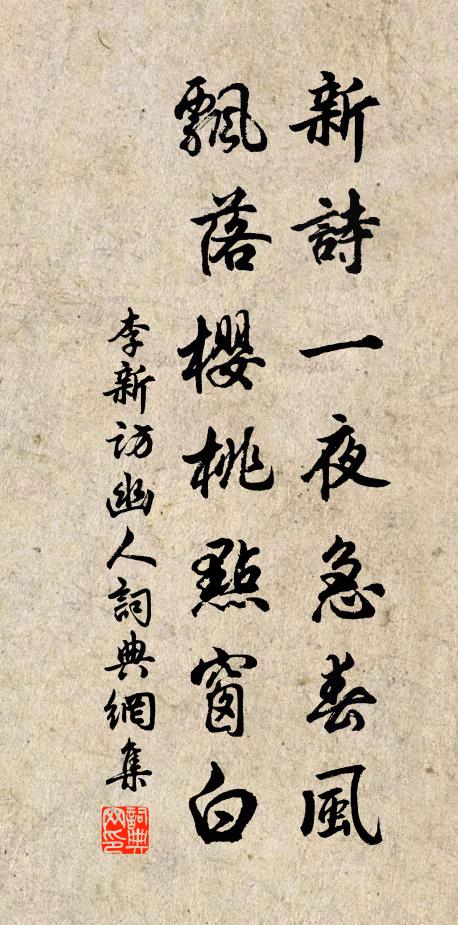 新詩一夜急春風
飄落櫻桃點窗白
李新訪幽人詞典網集
詞典网印